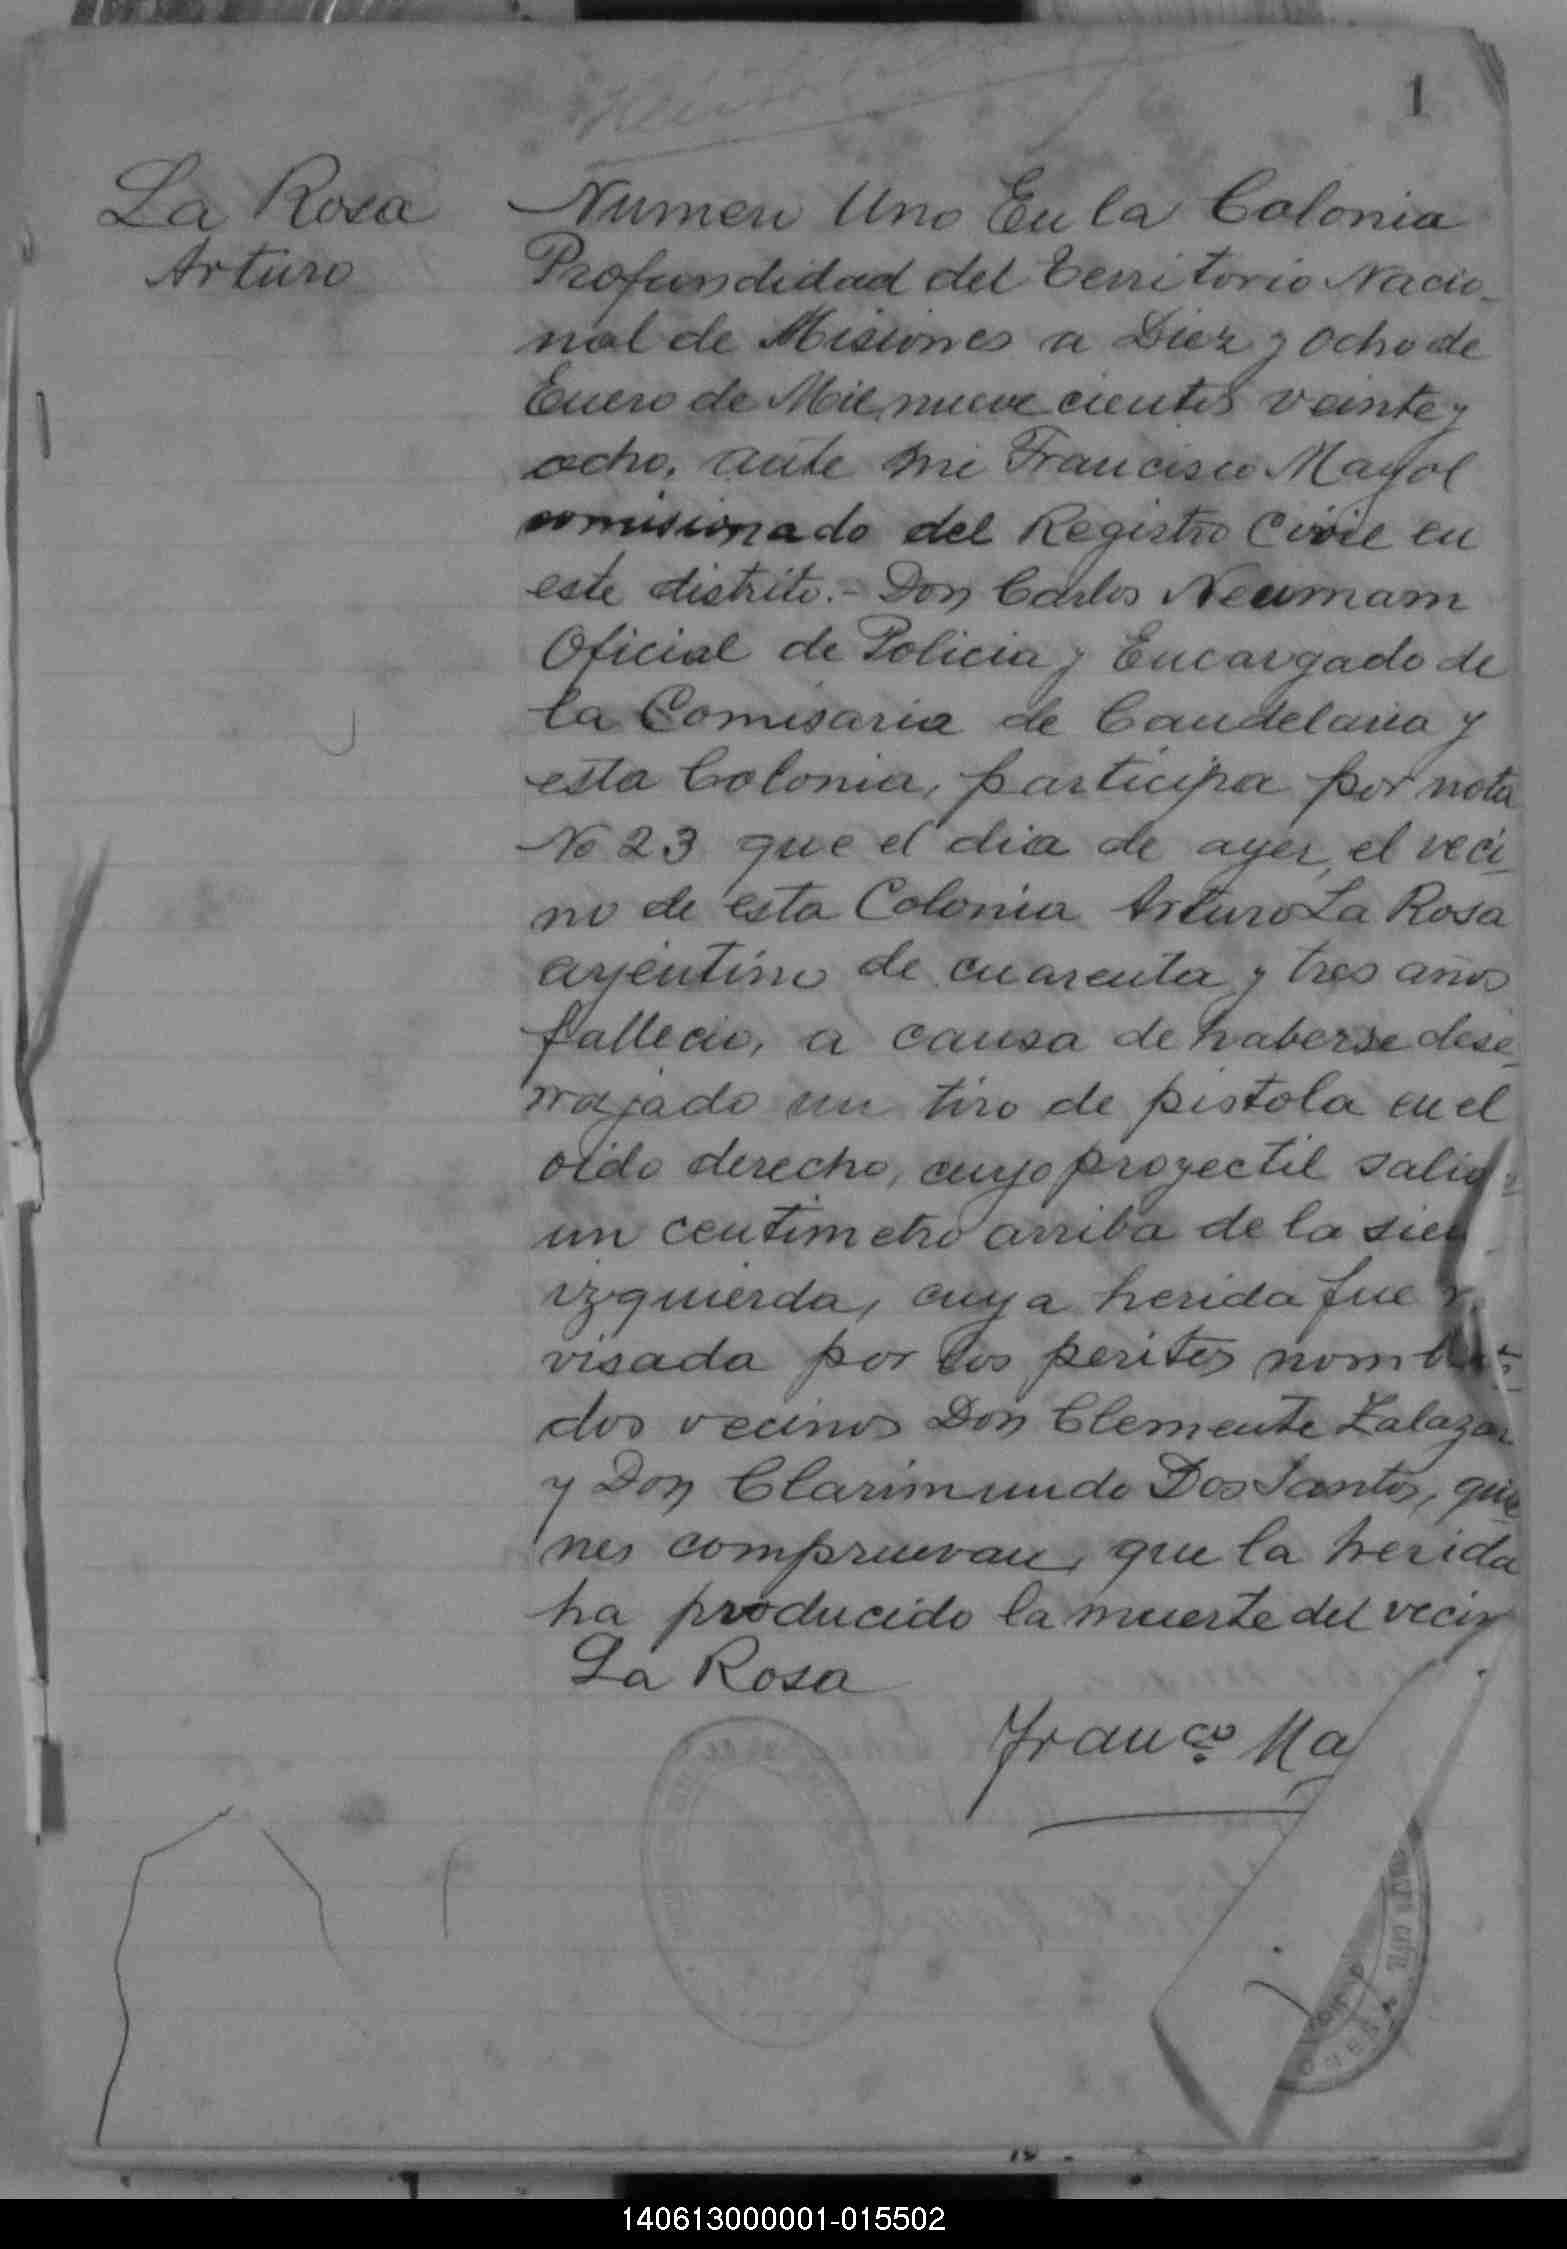 1
La Rosa
Arturo
Numero Uno En la Colonia
Profundidad del Territorio Nacio-
nal de Misiones a Diez y ocho de
Enero de Mil nueve cientos veinte y
ocho, ante mi Francisco Mayol
comisionado del Registro Civil en
este distrito.- Don Carlos Neumam
Oficial de Policia y Encargado de
la Comisaria de Candelaria y
esta Colonia, participa por nota
No 23 que el dia de ayer, el veci-
no de esta Colonia Arturo La Rosa
arjentino de cuarenta y tres años
fallecio, a causa de haberse dese-
rrajado un tiro de pistola en el
oido derecho, cuyo proyectil salio
un centimetro arriba de la sien
izquierda, cuya herida fue
visada por los peritos nombra-
dos vecinos Don Clemente Zalazar
y Don Clarimundo Dos Santos, quie
nes compruevan, que la herida
ha producido la muerte del vecin
La Rosa
Franco Ma
140613000001-015502